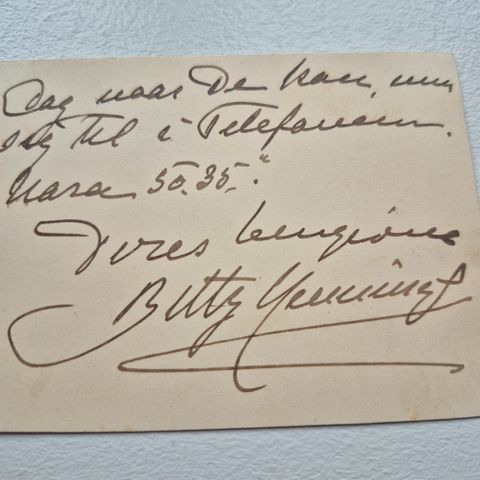 Dag naar De kan, men
sig til i Telefonen.
Nora 5035.
Deres hengivne
Betty Hennings